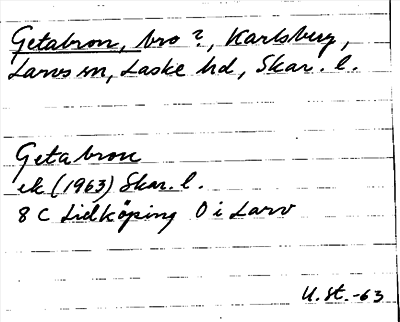 Getabron, bro?, Karlsberg,
Larvs sn, Laske hd, Skar. l.
Getabron
ek (1963) Skar. l.
8 C Lidköping O i Larv
U. St. -63